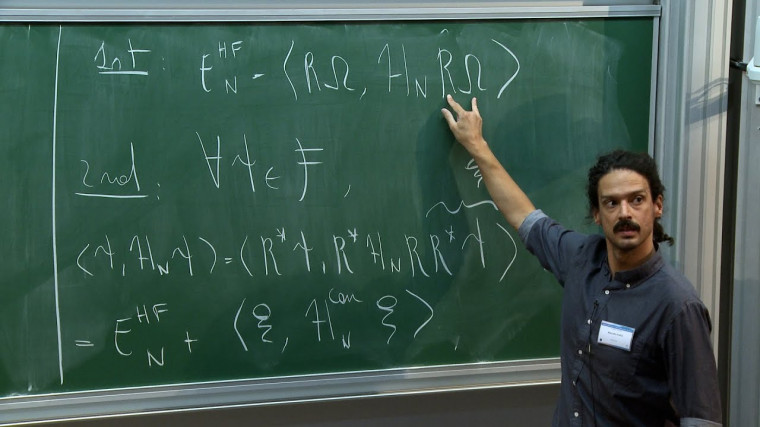 1st: E_N^{HF} = ⟨RΩ, H_N RΩ⟩
2nd: ∀ψ ∈ F,
ξ
⟨ψ, H_N ψ⟩ = ⟨R*ψ, R* H_N R R*ψ⟩
= E_N^{HF} + ⟨ξ, H_N^{con} ξ⟩